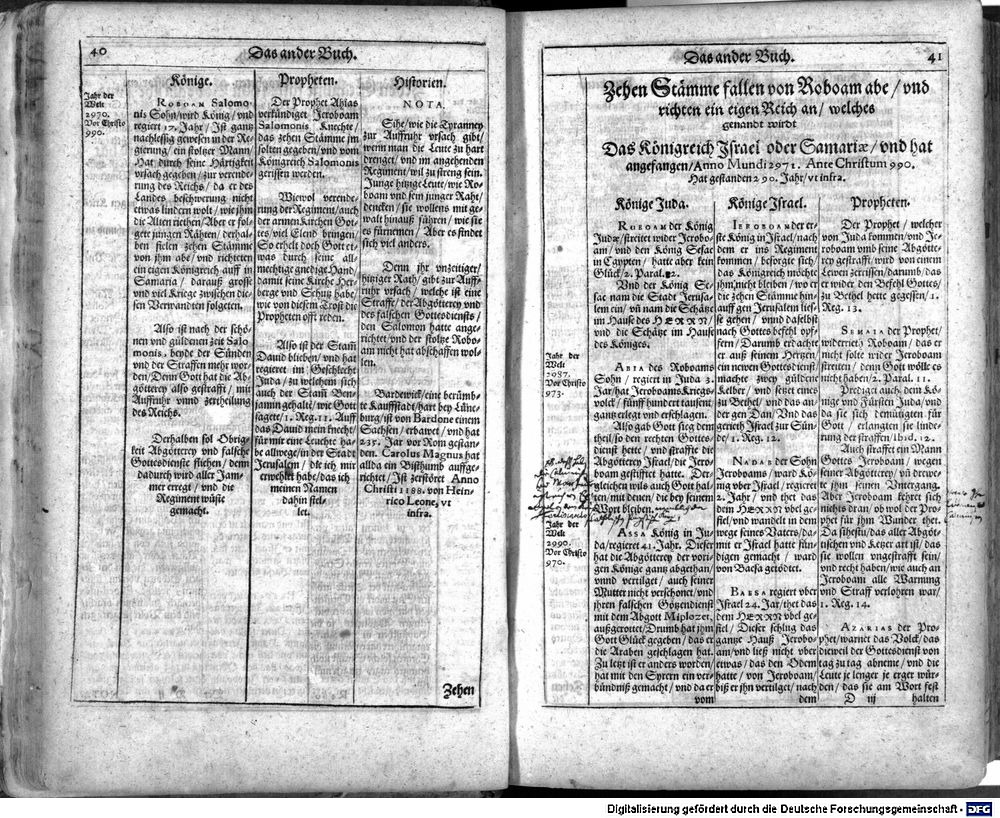 40
Das ander Buch.
Jahr der
Welt
2970.
Vor Christo
990.
Könige.
ROBOAM Salomo-
nis Sohn/wird König/vnd
regiert 17. Jahr/Ist gantz
nachlessig gewesen in der Re-
gierung/ein stoltzer Mann/
Hat durch seine Härtigkeit
vrsach gegeben/zur verende-
rung des Reichs/da er des
Landes beschwerung nicht
etwas lindern wolt/wie jhm
die Alten riethen/Aber er fol-
gete jungen Rähten/derhal-
ben fielen zehen Stämme
von jhm abe/vnd richteten
ein eigen Königreich auff in
Samaria/darauß grosse
vnd viel Kriege zwischen die-
sen Verwandten folgeten.
Also ist nach der schö-
nen vnd güldenen zeit Salo
monis, beyde der Sünden
vnd der Straffen mehr wor-
den/Denn Gott hat die Ab-
götterey also gestrafft/mit
Auffruhr vnnd zertheilung
des Reichs.
Derhalben sol Obrig-
keit Abgötterey vnd falsche
Gottesdienste fliehen/denn
dadurch wird aller Jam-
mer erregt/vnd die
Regiment wüste
gemacht.
Propheten.
Der Prophet Ahias
verkündiget Jeroboam
Salomonis Knechte/
das zehen Stämme jm
solten gegeben/vnd vom
Königreich Salomonis
gerissen werden.
Wiewol verende-
rung der Regiment/auch
der armen Kirchen Got-
tes/viel Elend bringen/
So erhelt doch Gott et-
was durch seine all-
mechtige gnedige Hand/
damit seine Kirche Her-
berge vnd Schutz habe/
wie von diesem Trost die
Propheten offt reden.
Also ist der Stam
Dauid blieben/vnd hat
regieret im Geschlecht
Juda/zu welchem sich
auch der Stam Ben-
jamin gehalte/wie Gott
sagete/1. Reg. 11. Auff
das Dauid mein knecht/
für mir eine Leuchte ha-
be allwege/in der Stadt
Jerusalem/die ich mir
erwehlet habe/das ich
meinen Namen
dahin stel-
let.
Historien.
NOTA.
Sihe/wie die Tyranney
zur Auffruhr vrsach gibt/
wenn man die Leute zu hart
drenget/vnd im angehenden
Regiment/wil zu streng sein.
Junge hitzige Leute/wie Ro-
boam vnd sein junger Raht/
dencken/sie wollens mit ge-
walt hinauß führen/wie sie
es fürnemen/Aber es findet
sich viel anders.
Denn jhr vnzeitiger/
hitziger Rath/gibt zur Auff-
ruhr vrsach/welche ist eine
Straffe/der Abgötterey vnd
des falschen Gottesdiensts/
den Salomon hatte ange-
richtet/vnd der stoltze Robo-
am nicht hat abschaffen wol-
len.
Bardewick/eine berümb-
te Kauffstadt/hart bey Lüne-
burg/ist von Bardone einem
Sachsen/erbawet/vnd hat
235. Jar vor Rom gestan-
den. Carolus Magnus hat
allda ein Bisthumb auffge-
richtet/Ist zerstöret Anno
Christi 1188. von Hein-
rico Leone, vt
infra.
Zehen
Das ander Buch.
41
Zehen Stämme fallen von Roboam abe/vnd
richten ein eigen Reich an/welches
genandt wirdt
Das Königreich Israel oder Samariæ/vnd hat
angefangen/Anno Mundi 2971. Ante Christum 990.
Hat gestanden 290. Jahr/vt infra.
Könige Juda.
ROBOAM der König
Judæ/streitet wider Jerobo-
am/vnd den König Sesac
in Egypten/hatte aber kein
Glück/2. Paral. 12.
Vnd der König Se-
sac nam die Stadt Jerusa-
lem ein/vn nam die Schätze
im Hause des HERRN/
vnd die Schätze im Hause
des Königes.
Jahr der
Welt
2987.
Vor Christo
973.
ABIA des Roboams
Sohn/regiert in Juda 3.
Jar/hat Jeroboams Kriegs-
volck/fünff hundert tausent/
gantz erlegt vnd erschlagen.
Also gab Gott sieg dem
theil/so den rechten Gottes-
dienst hette/vnd straffte die
Abgötterey Israel/die Jero-
boam gestifftet hatte. Der-
gleichen wils auch Gott hal-
ten/mit denen/die bey seinem
Wort bleiben.
Jahr der
Welt
2990.
Vor Christo
970.
ASSA König in Ju-
da/regieret 41. Jahr. Dieser
hat die Abgötterey der vori-
gen Könige gantz abgethan/
vnnd vertilget/auch seiner
Mutter nicht verschonet/vnd
jhren falschen Götzendienst
mit dem Abgott Miplozet,
außgerottet/Drumb hat jhm
Gott Glück gegeben/das er
die Araben geschlagen hat.
Zu letzt ist er anders worden/
hat mit den Syrern ein ver-
bündniß gemacht/vnd da er
vom
Könige Israel.
IEROBOAM der er-
ste König in Israel/nach
dem er ins Regiment
kommen/besorgte sich/
das Königreich möchte
jhm nicht bleiben/wo er
die zehen Stämme hin-
auff gen Jerusalem lies-
se gehen/vnd daselbst
nach Gottes befehl opf-
fern/Darumb erdachte
er auß seinem Hertzen/
ein newen Gottesdienst/
machte zwey güldene
Kelber/vnd setzet eines
zu Bethel/vnd das an-
der gen Dan/Vnd das
gerieth Israel zur Sün-
de/1. Reg. 12.
NADAB der Sohn
Jeroboams/ward Kö-
nig vber Israel/regieret
2. Jahr/vnd thet das
dem HERRN vbel ge-
fiel/vnd wandelt in dem
wege seines Vaters/da-
mit er Israel hatte sün-
digen gemacht/ward
von Baesa getödtet.
BAESA regiert vber
Israel 24. Jar/thet das
dem HERRN vbel ge-
fiel/Dieser schlug das
gantze Hauß Jerobo-
am/vnd ließ nicht vber
etwas/das den Odem
hatte/von Jeroboam/
biß er jhn vertilget/nach
dem
Propheten.
Der Prophet/welcher
von Juda kommen/vnd Je-
roboam vnd seine Abgötte-
rey gestrafft/wird von einem
Lewen zerrissen/darumb/das
er wider den Befehl Gottes/
zu Bethel hette gegessen/1.
Reg. 13.
SEMAIA der Prophet/
widerriet Roboam/das er
nicht solte wider Jeroboam
streiten/denn Gott wölle es
nicht haben/2. Paral. 11.
Predigt auch dem Kö-
nige vnd Fürsten Juda/vnd
da sie sich demütigten für
Gott/erlangten sie linde-
rung der straffen/Ibid. 12.
Auch strafft ein Mann
Gottes Jeroboam/wegen
seiner Abgötterey/vn drewe-
te jhm seinen Vntergang.
Aber Jeroboam kehret sich
nichts dran/ob wol der Pro-
phet für jhm Wunder thet.
Da sihestu/das aller Abgöt-
tischen vnd Ketzer art ist/das
sie wollen vngestrafft sein/
vnd recht haben/wie auch an
Jeroboam alle Warnung
vnd Straff verlohren war/
1. Reg. 14.
AZARIAS der Pro-
phet/warnet das Volck/das
dieweil der Gottesdienst von
tag zu tag abneme/vnd die
Leute je lenger je erger wür-
den/das sie am Wort fest
D iij
halten
Digitalisierung gefördert durch die Deutsche Forschungsgemeinschaft - DFG